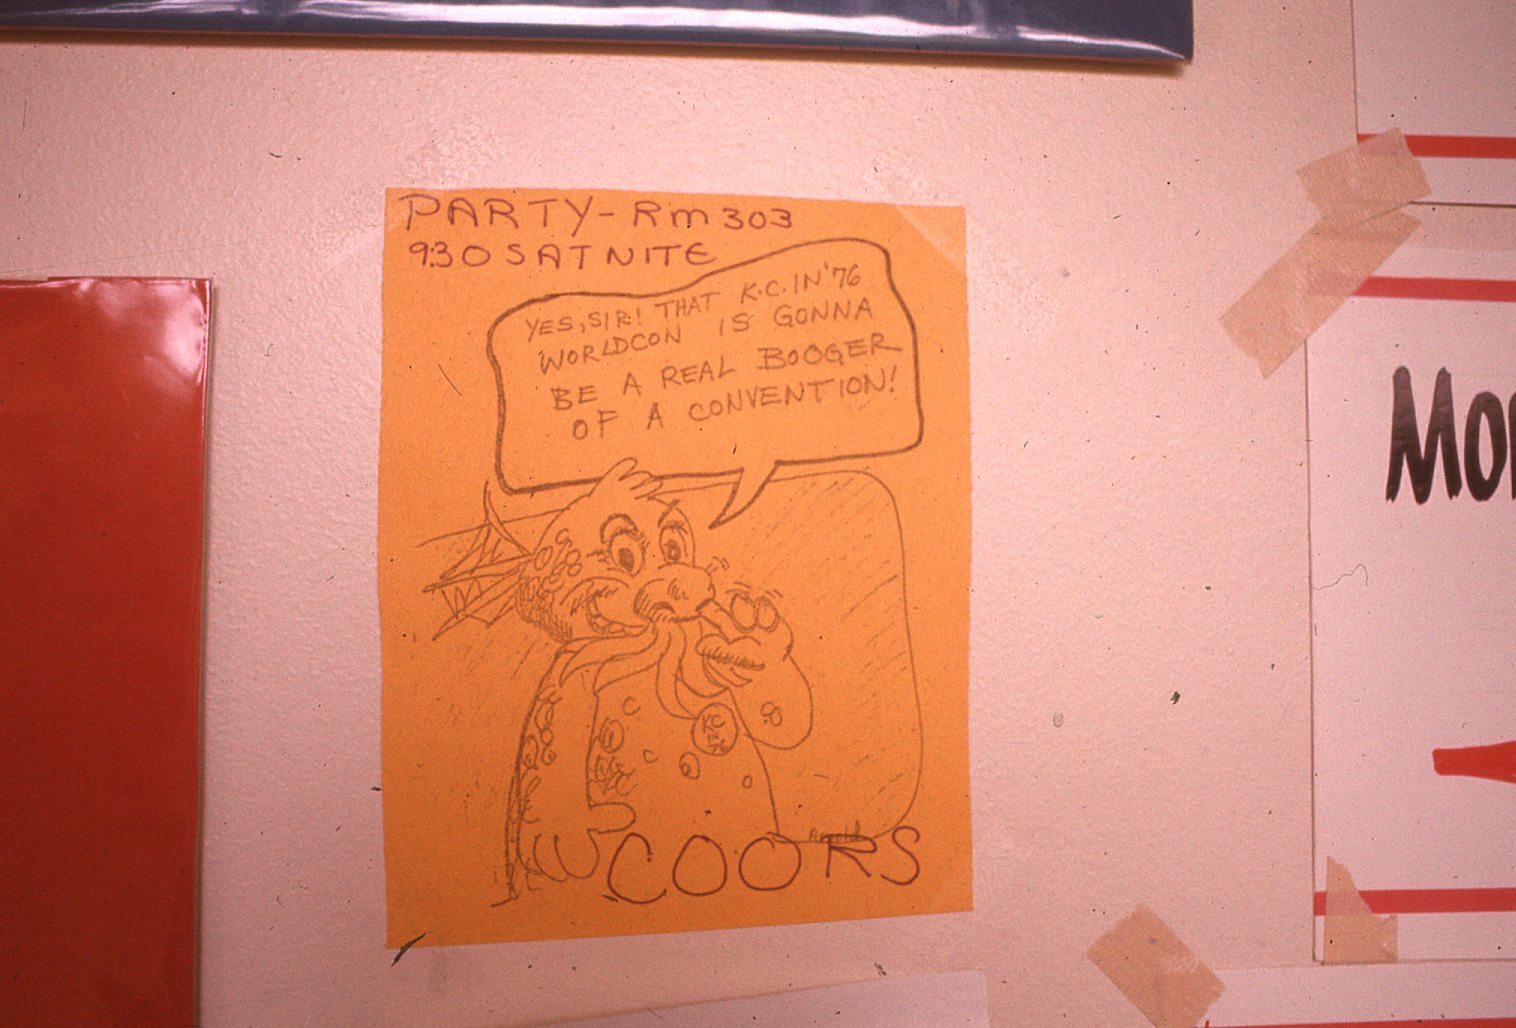 PARTY - Rm 303
9:30 SAT NITE
YES, SIR! THAT K.C. IN '76
WORLDCON IS GONNA
BE A REAL BOOGER
OF A CONVENTION!
KC
COORS
Mo